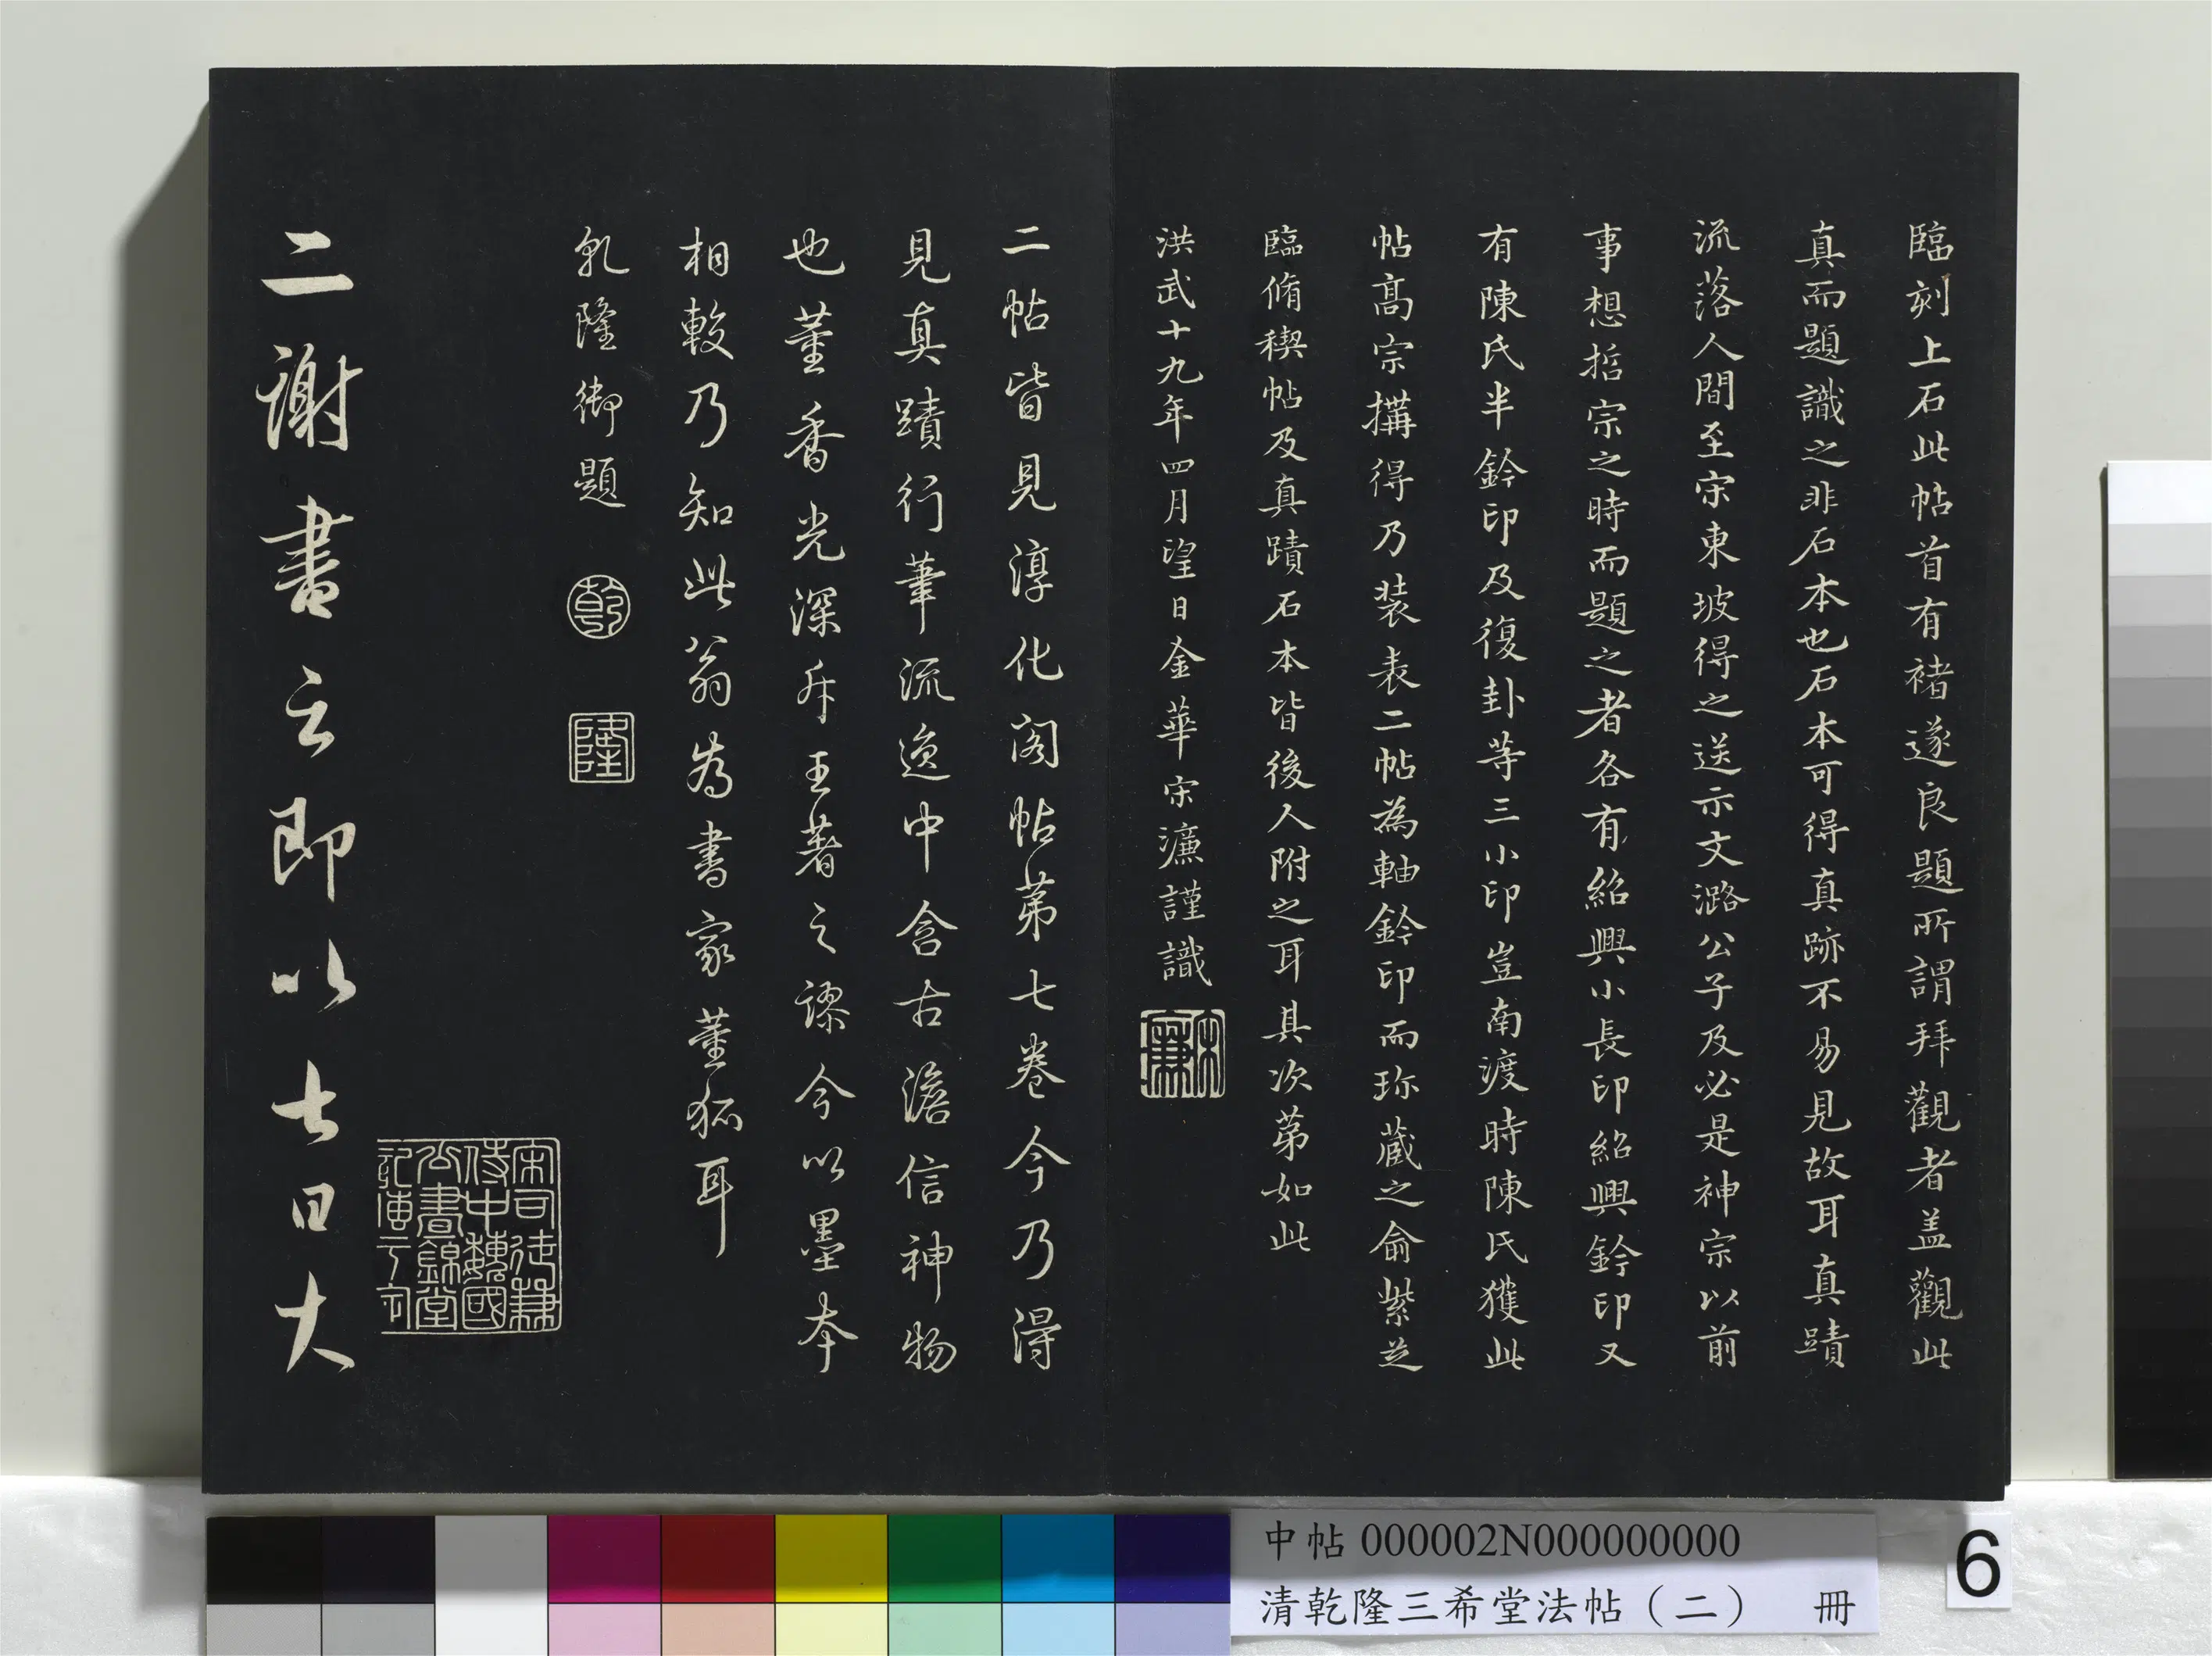 臨刻上石此帖首有褚遂良題所謂拜觀者盖觀此
真而題識之非石本也石本可得真跡不易見故耳真蹟
流落人間至宋東坡得之送示文潞公子及必是神宗以前
事想哲宗之時而題之者各有紹興小長印紹興鈐印又
有陳氏半鈐印及復卦等三小印豈南渡時陳氏獲此
帖高宗搆得乃装表二帖為軸鈐印而珎蔵之侖紫芝
臨脩稧帖及真蹟石本皆後人附之耳具次第如此
洪武十九年四月望日金華宋濂謹識
宋濂
二帖皆見淳化阁帖苐七卷今乃得
見真蹟行筆流逸中含古澹信神物
也董香光深斥王著之謬今以墨本
相較乃知此翁為書家董狐耳
乾隆御題
乾
隆
宋司徒兼
侍中魏國
公晝錦堂
記
二謝書云即以七日大
中帖 000002N000000000
清乾隆三希堂法帖（二） 冊
6